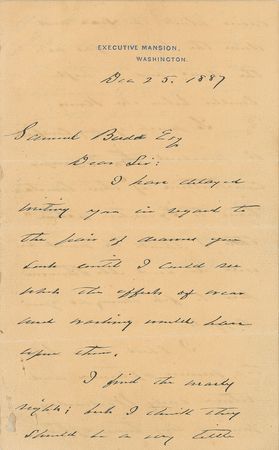 EXECUTIVE MANSION,
WASHINGTON.
Dec 25. 1887
Samuel Budd Esq
Dear Sir:
I have delayed
writing you in regard to
the pair of drawers you
sent until I could see
what the effects of wear
and washing would have
upon them.
I find them nearly
right; but I think they
should be a very little